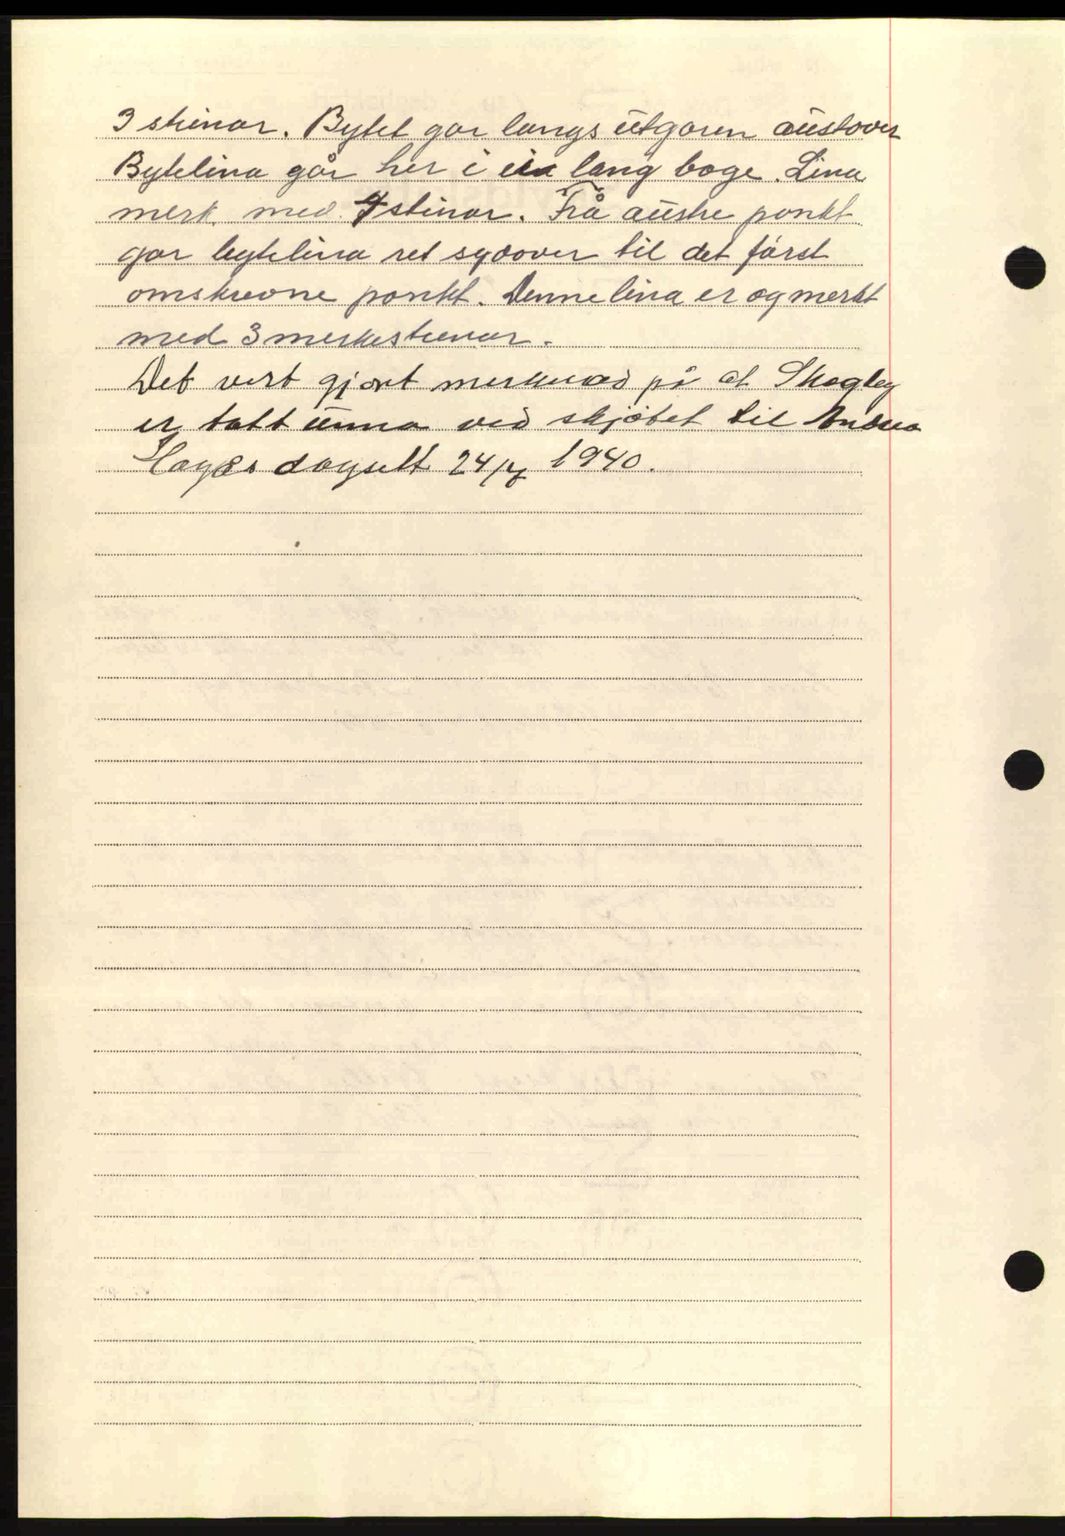 3 steinar. Bytet gar langs útgaren aústover
Bytelina går her i ein lang boge. Lina
merk. med 4 steinar. Frå aústre ponkt
gar bytelina ret sydover til det fórst
omskrevne ponkt. Denne lina er og merkt
med 3 merkesteinar.
Det vert gjort merknad på at Skogley
er tatt únna ved skjøtet til
dagsett 24/7 1940.